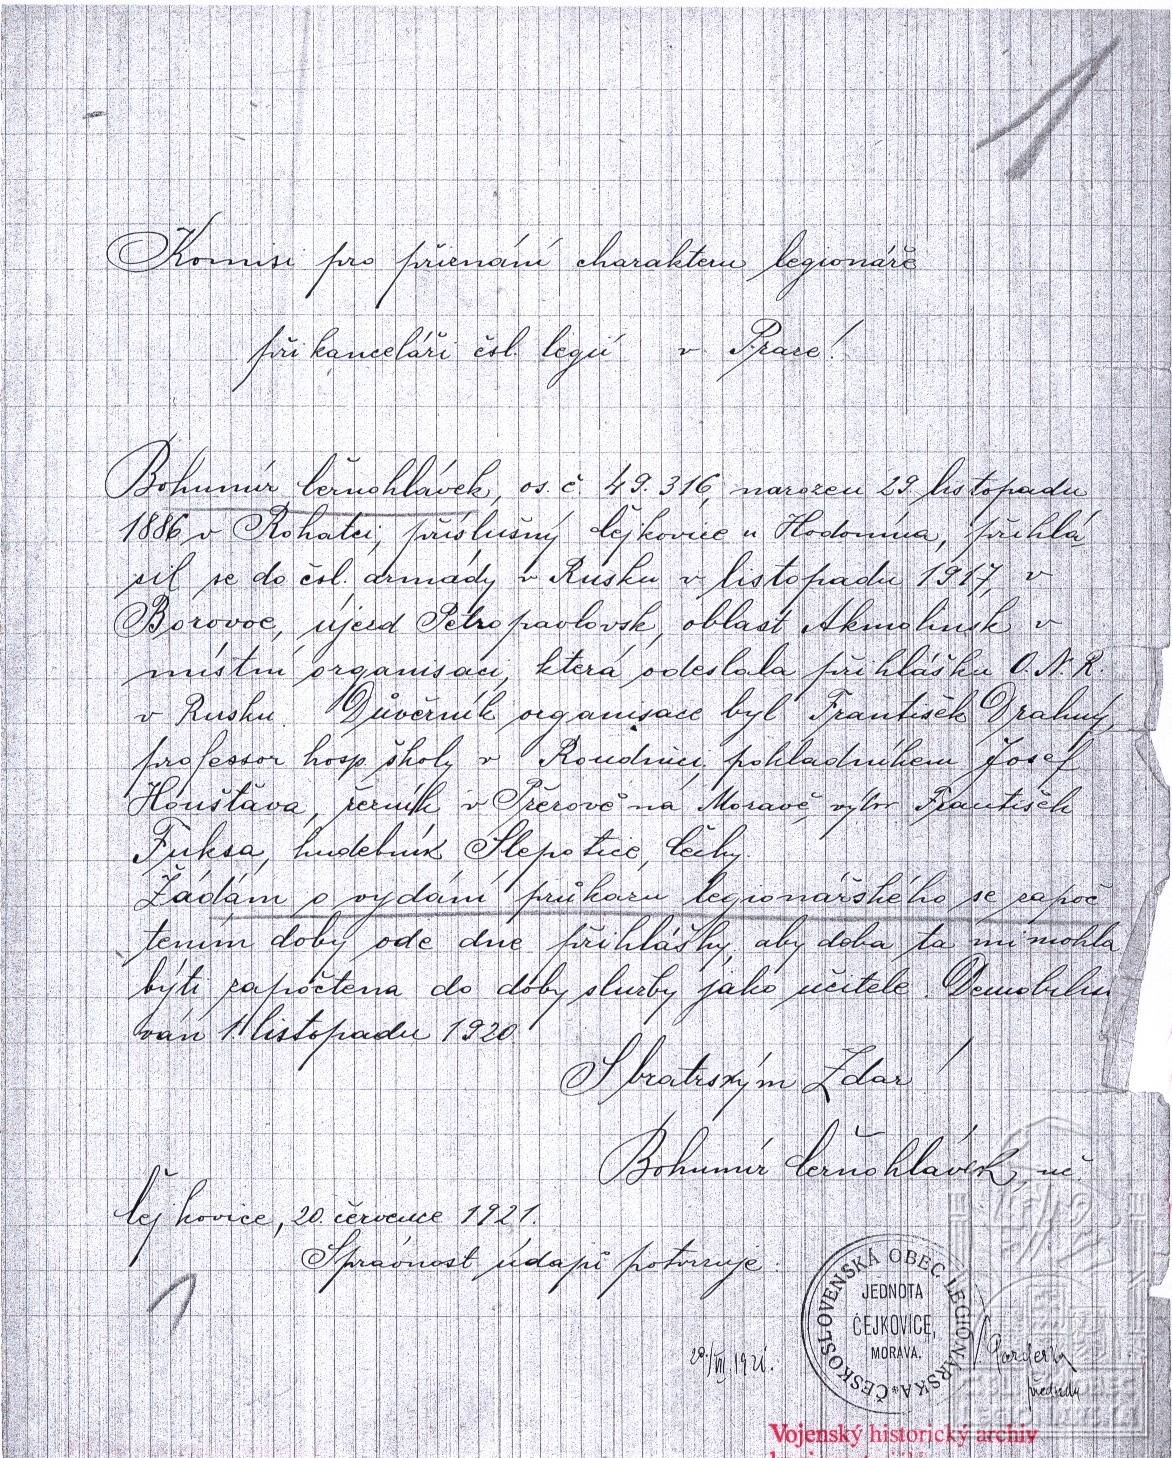 Komisi pro přiznání charakteru legionáře
při kanceláři čsl. legií v Praze!
Bohumír Čerňohlávek, os. č. 49.316, narozen 29. listopadu
1886 v Rohatci, příslušný Čejkovice u Hodonína, přihlá-
sil se do čsl. armády v Rusku v listopadu 1917 v
Borovoe, újezd Petropavlovsk, oblast Akmolinsk v
místní organisaci, která odeslala přihlášku O.N.R.
v Rusku. Důvěrník organisace byl František Drahný,
professor hosp. školy v Roudnici, pokladníkem Josef
Houšťava, řezník v Přerově na Moravě, výbor František
Fuksa, hudebník Slepotice, Čechy.
Žádám o vydání průkazu legionářského se započ-
tením doby ode dne přihlášky, aby doba ta mi mohla
býti započtena do doby služby jako učitele. Demobiliso
ván 1. listopadu 1920.
S bratrským Zdar!
Bohumír Čerňohlávek, uč.
Čejkovice, 20. července 1921.
Správnost údajů potvrzuje:
ČESKOSLOVENSKÁ OBEC LEGIONÁRSKÁ
JEDNOTA
ČEJKOVICE,
MORAVA.
20./VII. 1921.
předseda
Československá obec
legionářská
Vojenský historický archiv